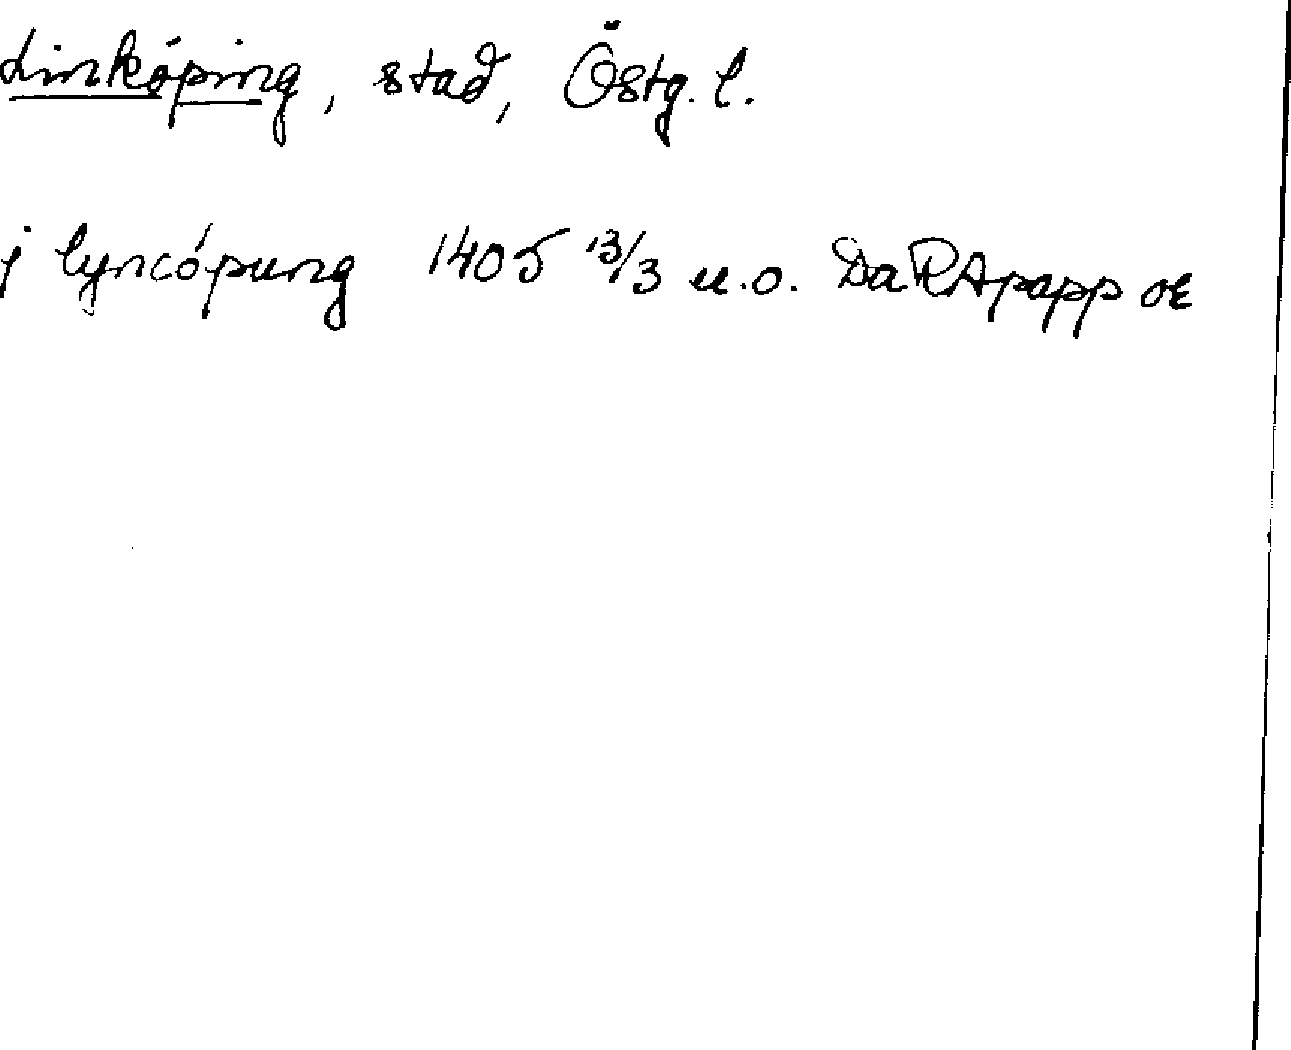 Linköping, stad, Östg. l.
j lyncópung 1405 13/3 u.o. DaRApapp or